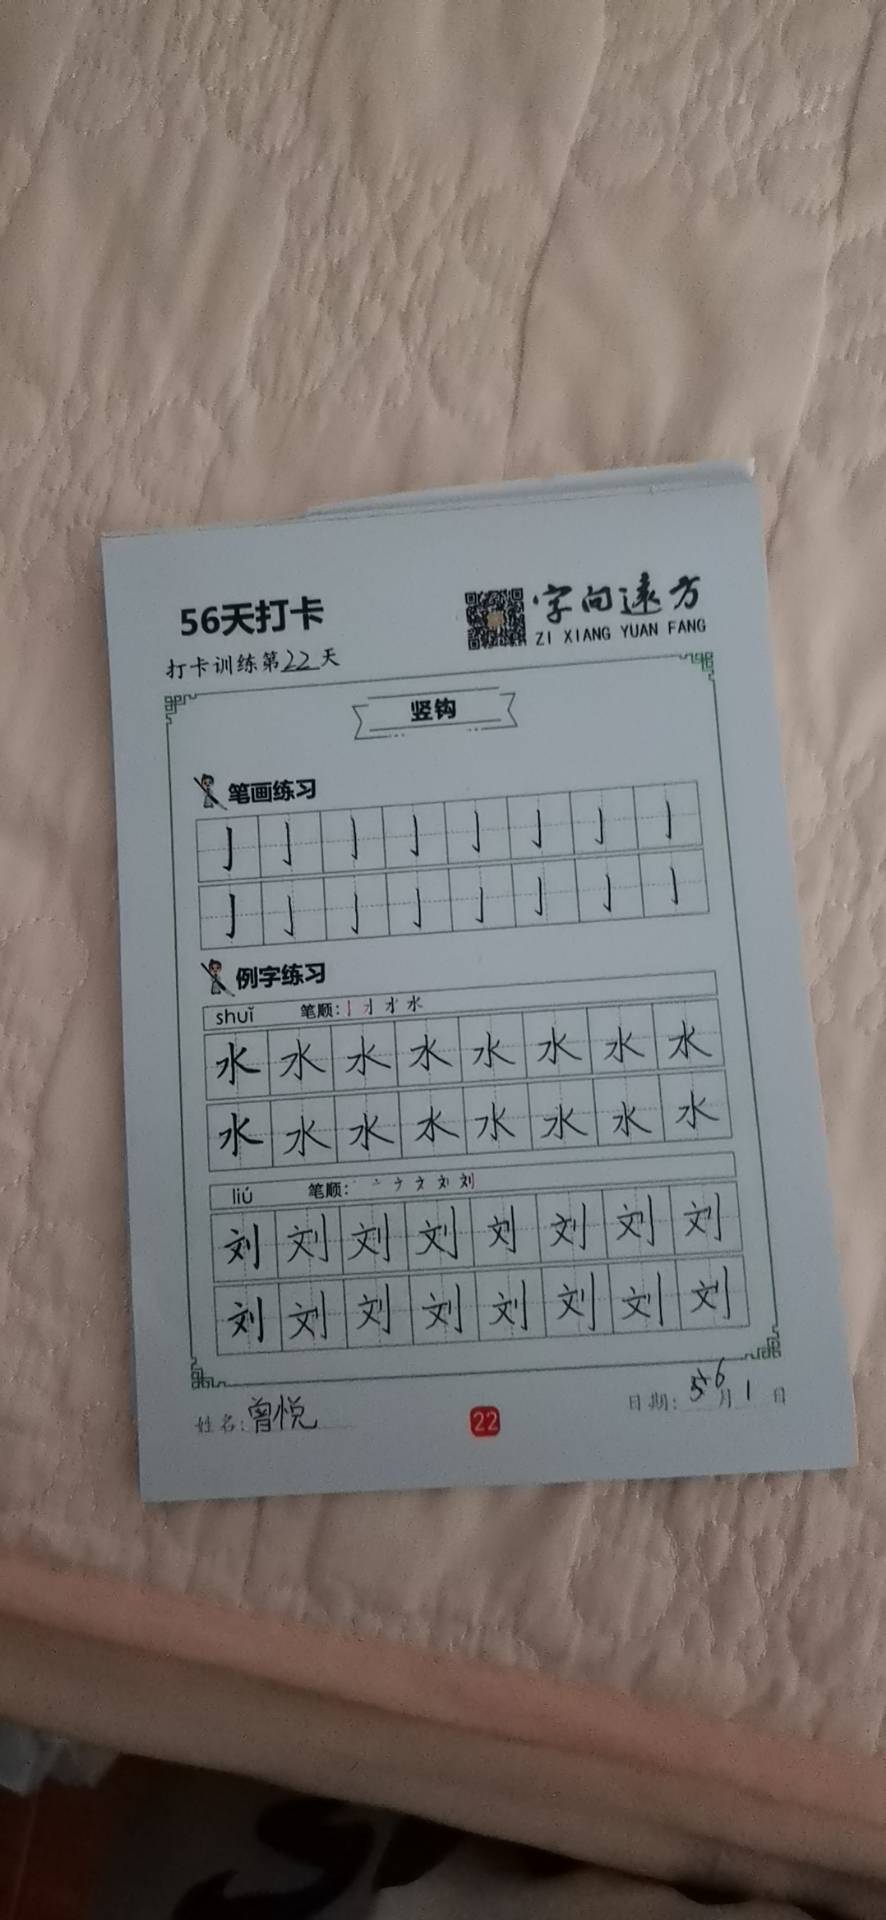 56天打卡
字向远方
ZI XIANG YUAN FANG
打卡训练第22天
竖钩
笔画练习
亅亅亅亅亅亅亅亅
亅亅亅亅亅亅亅亅
例字练习
shuǐ 笔顺：
水水水水水水水水
水水水水水水水水
liú 笔顺：
刘刘刘刘刘刘刘刘
刘刘刘刘刘刘刘刘
姓名：曾悦 22 日期：6月1日